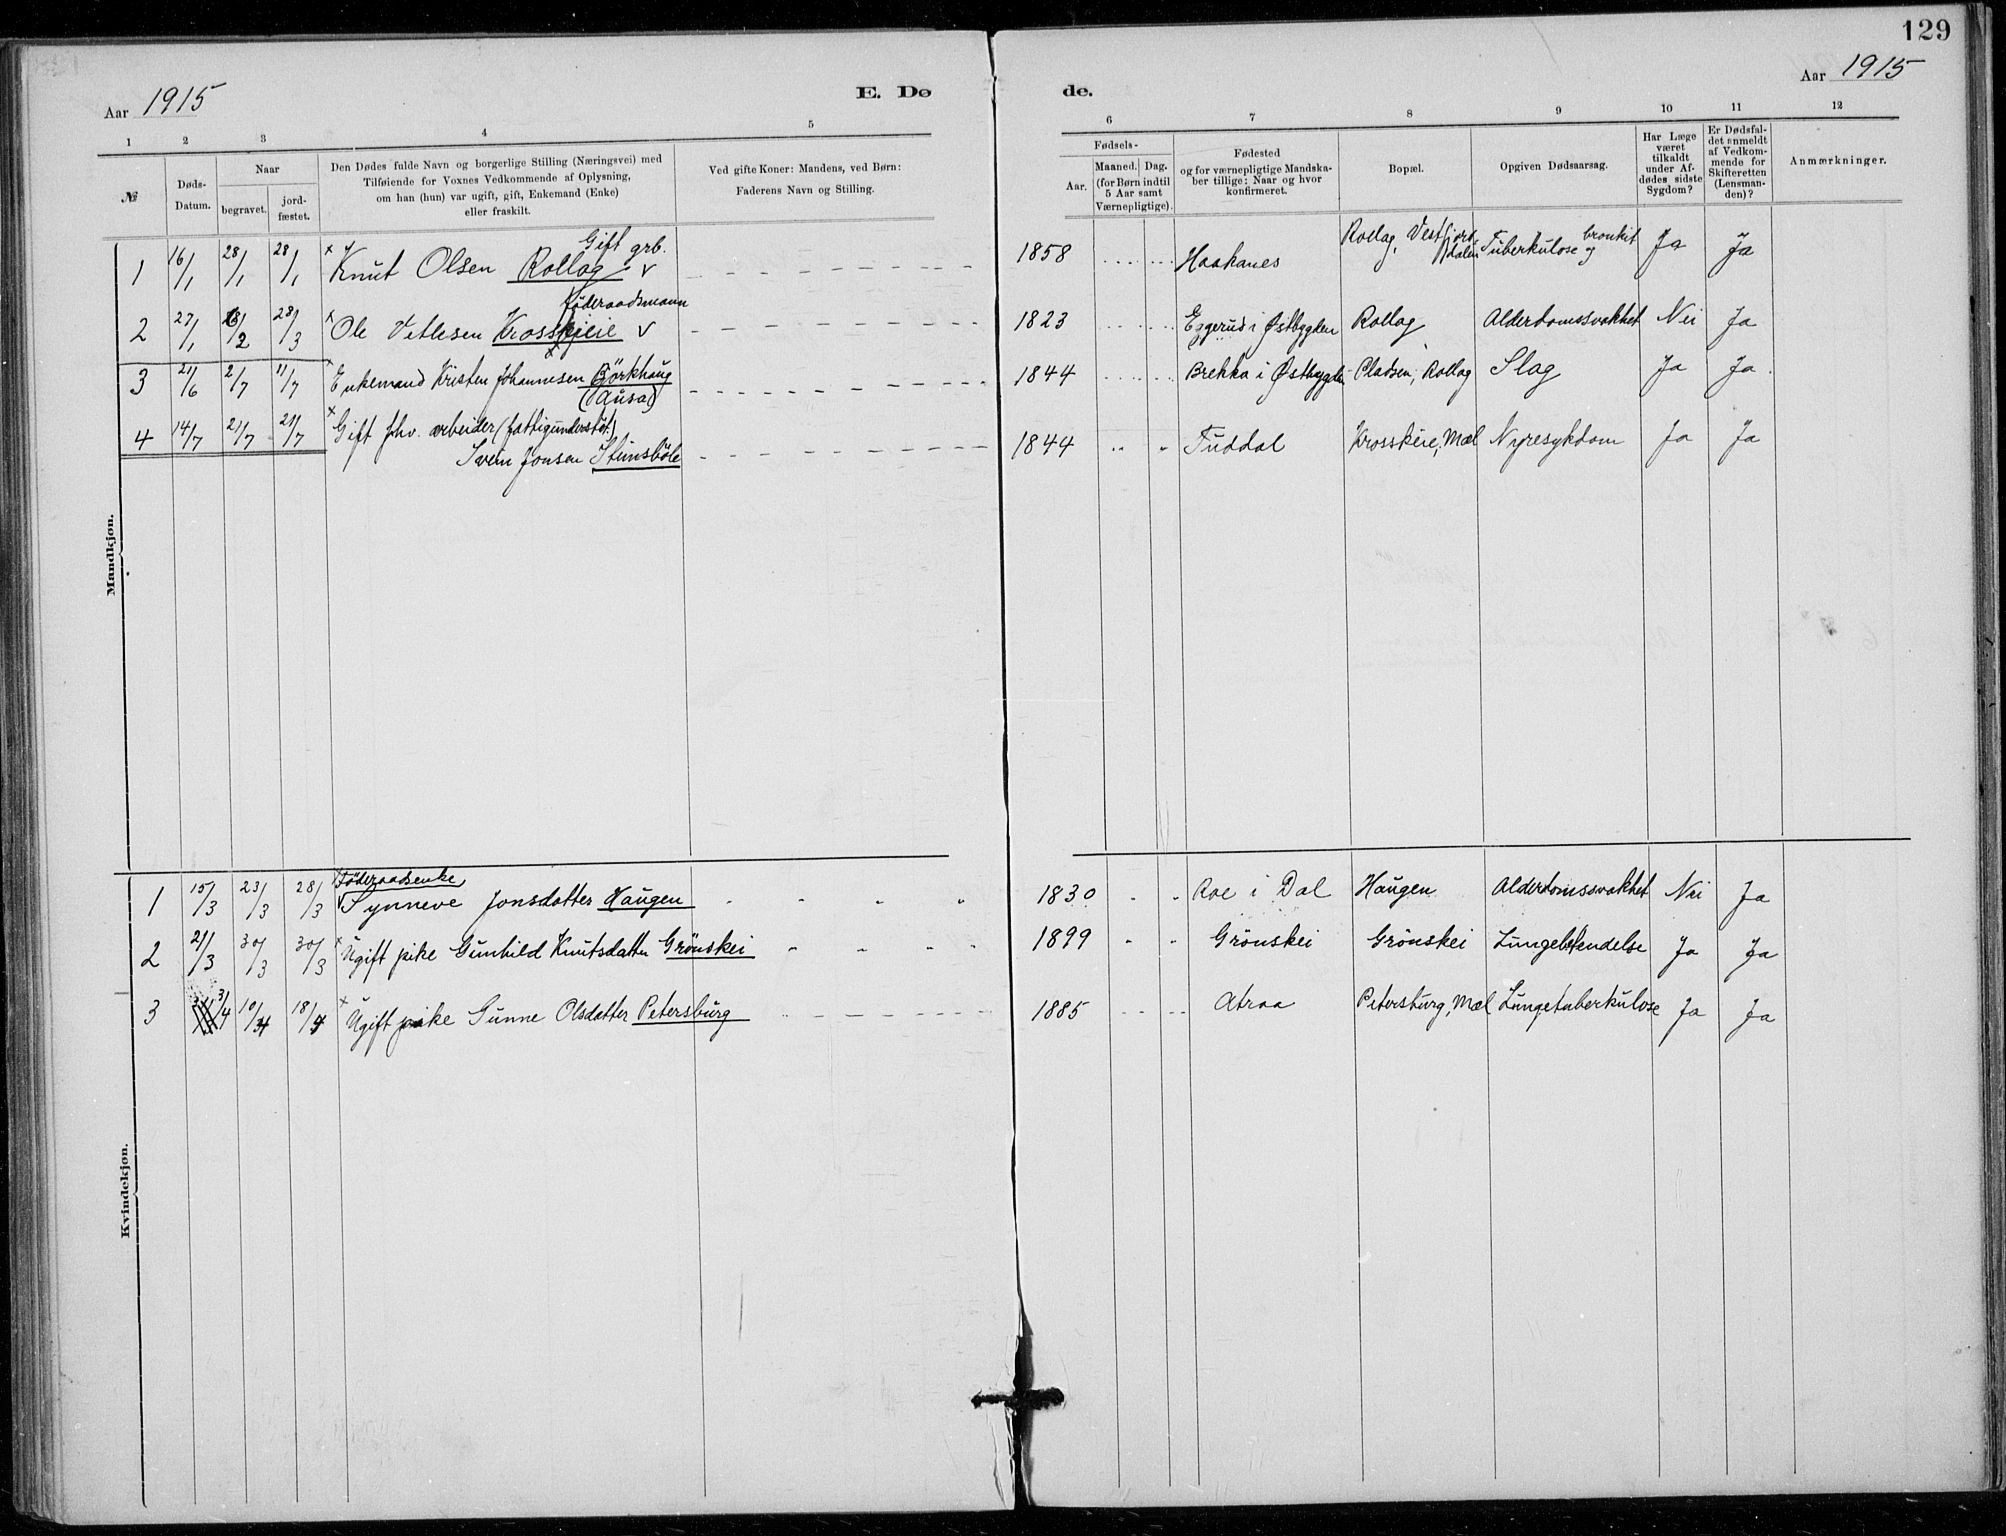 129
Aar 1915
E. Dø
de.
Aar 1915
1 2 3 4 5
6 7 8 9 10 11 12
№
Døds-
Datum.
Naar
begravet.
jord-
fæstet.
Den Dødes fulde Navn og borgerlige Stilling (Næringsvei) med
Tilføiende for Voxnes Vedkommende af Oplysning,
om han (hun) var ugift, gift, Enkemand (Enke)
eller fraskilt.
Ved gifte Koner: Mandens, ved Børn:
Faderens Navn og Stilling.
Fødsels-
Aar.
Maaned. Dag.
(for Børn indtil
5 Aar samt
Værnepligtige).
Fødested
og for værnepligtige Mandska-
ber tillige: Naar og hvor
konfirmeret.
Bopæl.
Opgiven Dødsaarsag.
Har Læge
været
tilkaldt
under Af-
dødes sidste
Sygdom?
Er Dødsfal-
det anmeldt
af Vedkom-
mende for
Skifteretten
(Lensman-
den)?
Anmærkninger.
Mandkjøn.
Gift grb.
1 16/1 28/1 28/1 x Knut Olsen Rollag v 1858 Haakanes Rollag, Vestfjorddalen Tuberkulose bronkit Ja Ja
Föderaadsmann
2 27/1 /2 28/3 x Ole Vetlesen Krosskjeie v 1823 Eggerud i Østbygden Rollag Alderdomssvakhet Nei Ja
3 21/6 2/7 11/7 x Enkemand Kristen Johannesen Björkhaug 1844 Brekka i Østbygden Pladsen, Rollag Slag Ja Ja
(Ausa)
4 14/7 21/7 21/7 x Gift fhv. arbeider (fattigunderstöt.)
Svein Jonsen Steinsböle 1844 " " Tuddal Krosskeie, Mæl Nyresykdom Ja Ja
Kvindekjøn.
Föderaadsenke
1 15/3 23/3 28/3 v Synneve Jonsdatter Haugen " " " " 1830 " " Roe i Dal Haugen Alderdomssvakhet Nei Ja
2 21/3 30/3 30/3 x Ugift pike Gunhild Knutsdatter Grönskei " " " " 1899 " " Grönskei Grönskei Lungebetendelse Ja Ja
3 3/4 10/4 18/4 x Ugift pike Gunne Olsdatter Petersburg 1885 Atraa Petersburg, Mæl Lungetuberkulose Ja Ja